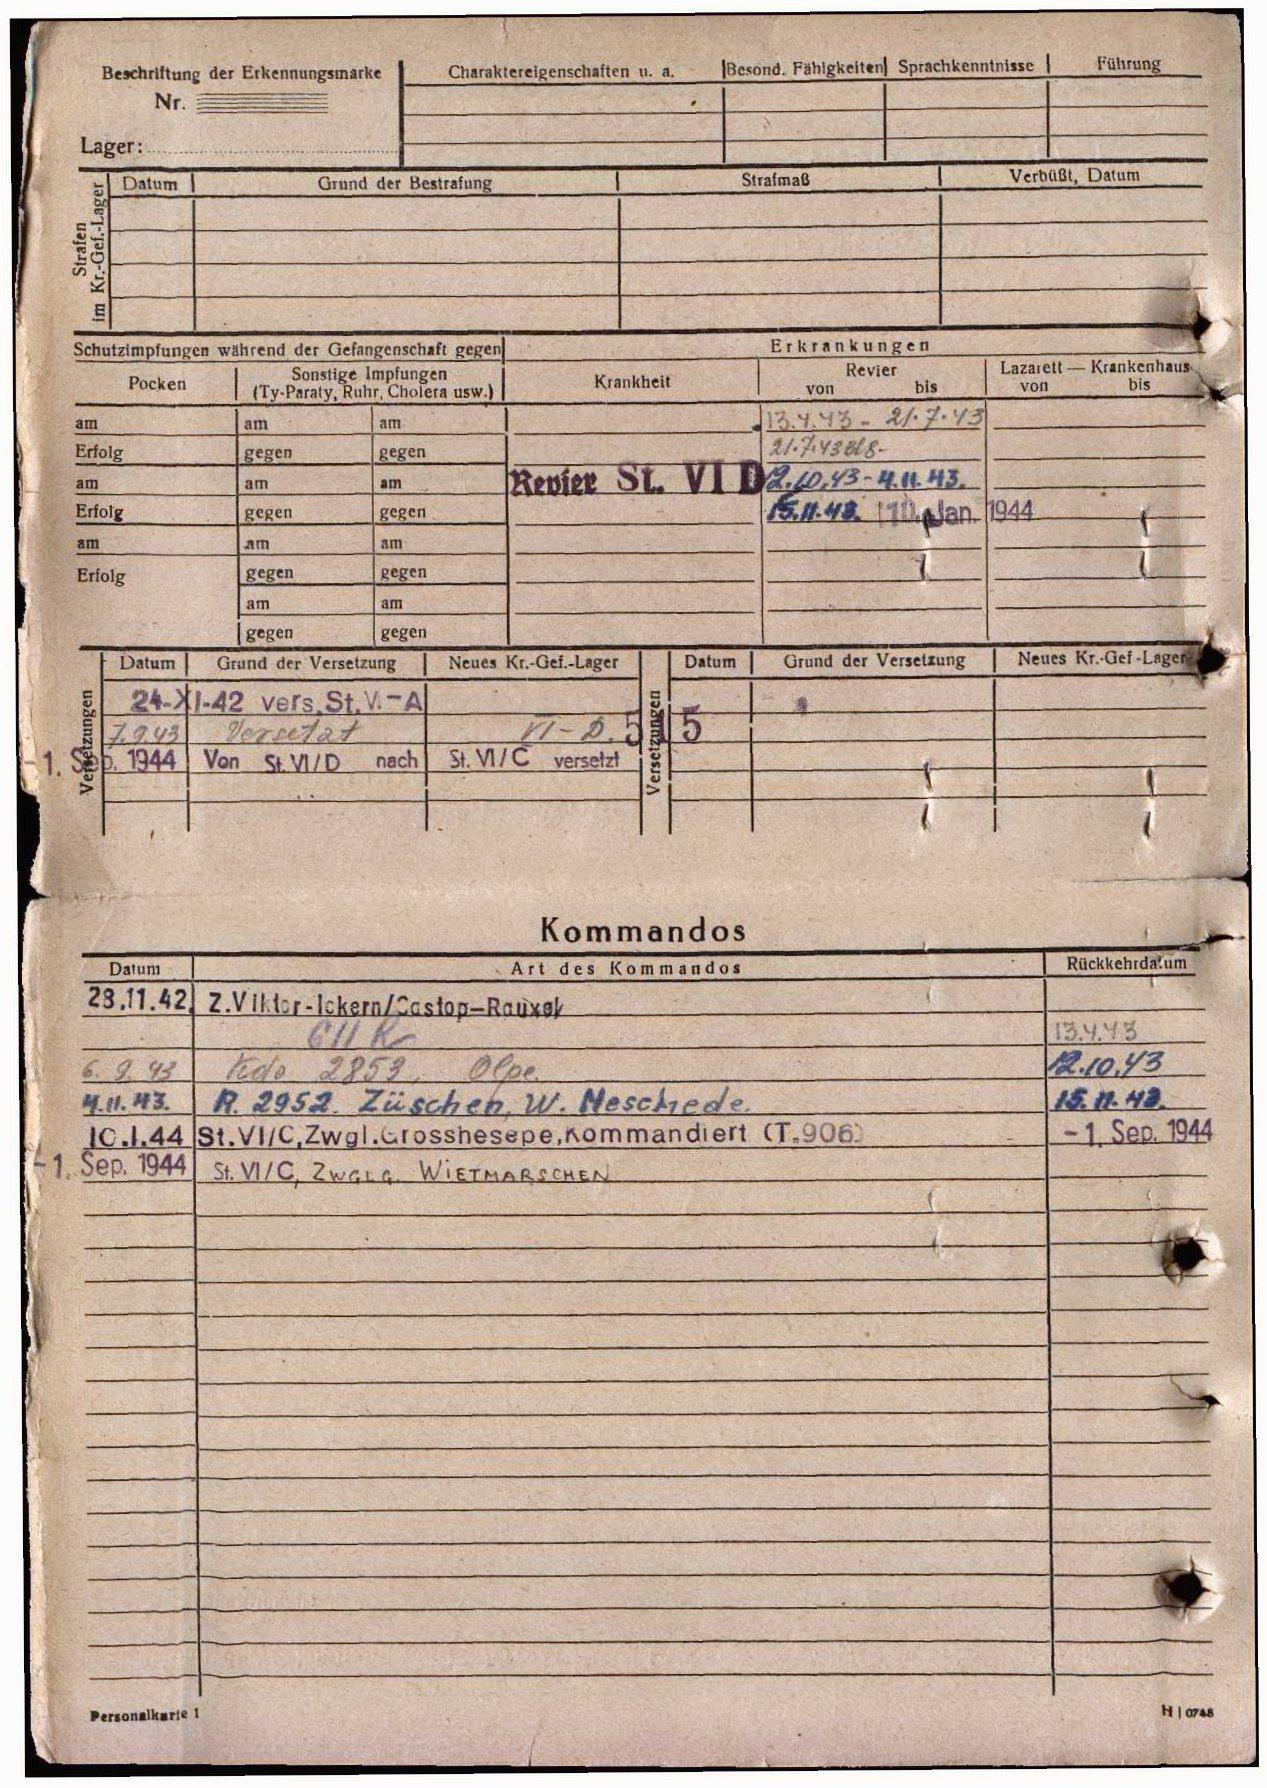 Beschriftung der Erkennungsmarke
Nr.
Lager:
Charaktereigenschaften u. a. Besond. Fähigkeiten Sprachkenntnisse Führung
Strafen im Kr.-Gef.-Lager
Datum Grund der Bestrafung Strafmaß Verbüßt, Datum
Schutzimpfungen während der Gefangenschaft gegen Erkrankungen
Pocken Sonstige Impfungen Krankheit Revier Lazarett — Krankenhaus
(Ty-Paraty, Ruhr, Cholera usw.) von bis von bis
am am am 13.4.43 - 21.7.43
Erfolg gegen gegen 21.7.43
am am am Revier St. VI D 12.10.43 - 4.11.43.
Erfolg gegen gegen 15.11.43. 10. Jan. 1944
am am am
Erfolg gegen gegen
am am
gegen gegen
Versetzungen
Datum Grund der Versetzung Neues Kr.-Gef.-Lager
24-XI-42 vers. St. VI-A
7.9.43 Versetzt VI-D. 515
-1. Sep. 1944 Von St. VI/D nach St. VI/C versetzt
Versetzungen
Datum Grund der Versetzung Neues Kr.-Gef-Lager
Kommandos
Datum Art des Kommandos Rückkehrdatum
28.11.42. Z.Viktor-Ickern/Castop-Rauxel
611 R 13.4.43
6. 9. 43 Kdo 2853, Olpe. 12.10.43
4.11.43. R. 2952. Züschen, W. Meschede. 15.11.43.
10.1.44 St.VI/C,Zwgl.Grosshesepe,kommandiert (T.906) -1. Sep. 1944
-1. Sep. 1944 St. VI/C, ZWGLG. WIETMARSCHEN
Personalkarte 1 H | 0748